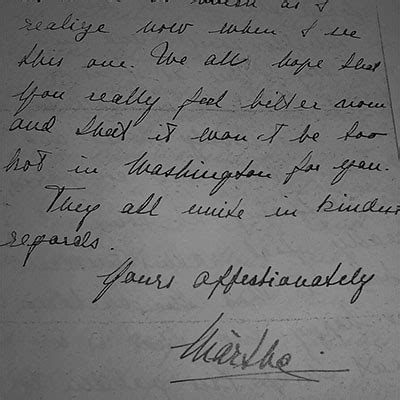 as I
realize now when I see
this one. We all hope that
you really feel better now
and that it won't be too
hot in Washington for you.
They all unite in kindest
regards.
Yours affectionately
Martha